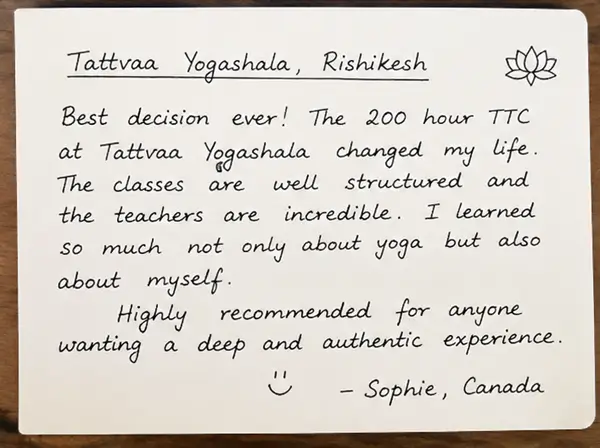 Tattvaa Yogashala, Rishikesh
Best decision ever! The 200 hour TTC
at Tattvaa Yogashala changed my life.
The classes are well structured and
the teachers are incredible. I learned
so much not only about yoga but also
about myself.
Highly recommended for anyone
wanting a deep and authentic experience.
- Sophie, Canada